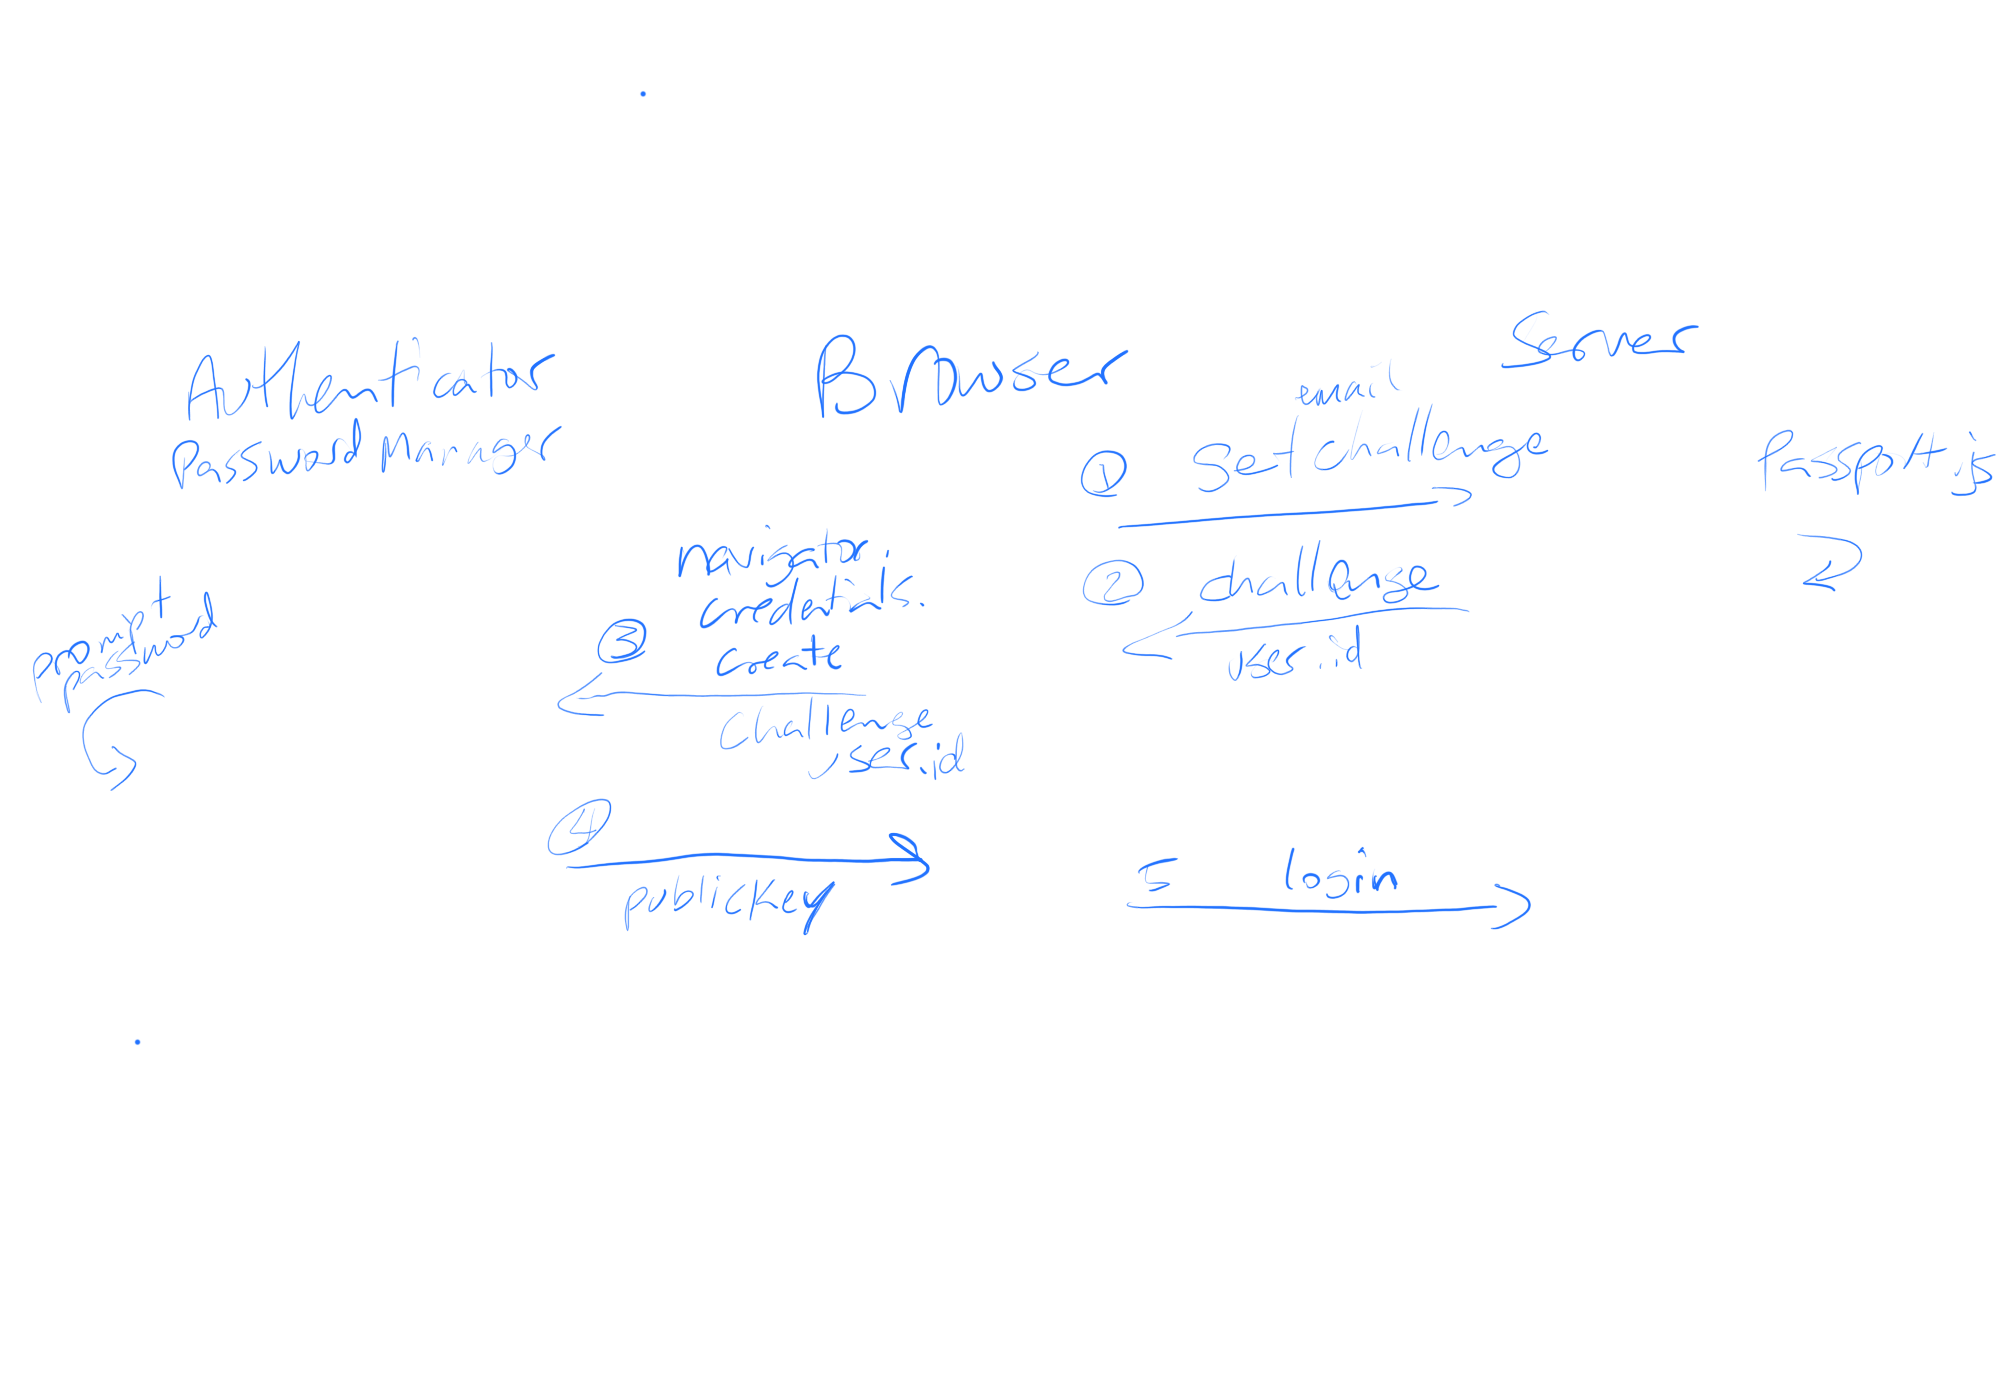 Authenticator
Password Manager
Browser
Server
email
① Set challenge
Passport.js
② challenge
user.id
navigator.
credentials.
③ create
challenge
user.id
prompt
password
④
publicKey
5 login